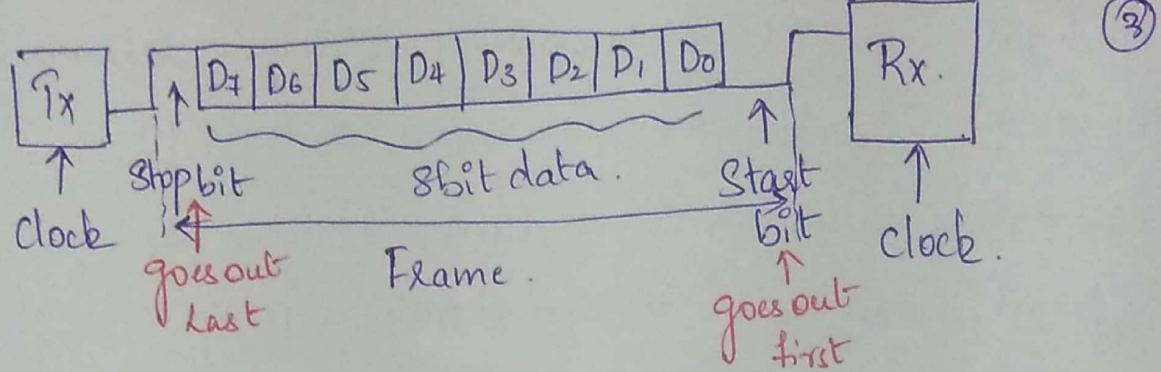 3
Tx
D7 D6 D5 D4 D3 D2 D1 D0
Rx.
Stop bit
8bit data.
Start
bit
clock
clock.
goes out
Last
Frame.
goes out
first